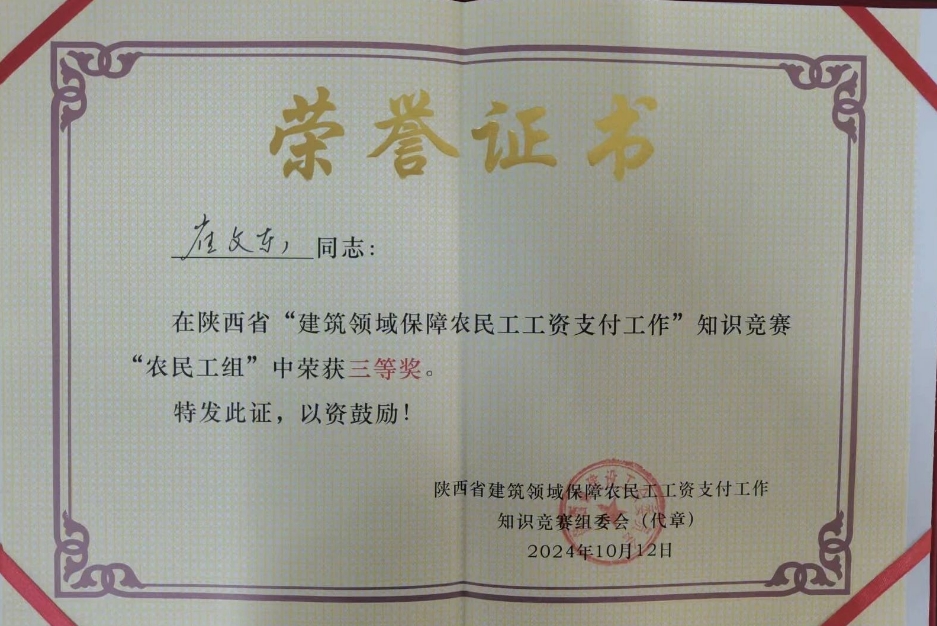 荣誉证书
崔文东 同志：
在陕西省“建筑领域保障农民工工资支付工作”知识竞赛
“农民工组”中荣获三等奖。
特发此证，以资鼓励！
陕西省建筑领域保障农民工工资支付工作
知识竞赛组委会（代章）
2024年10月12日